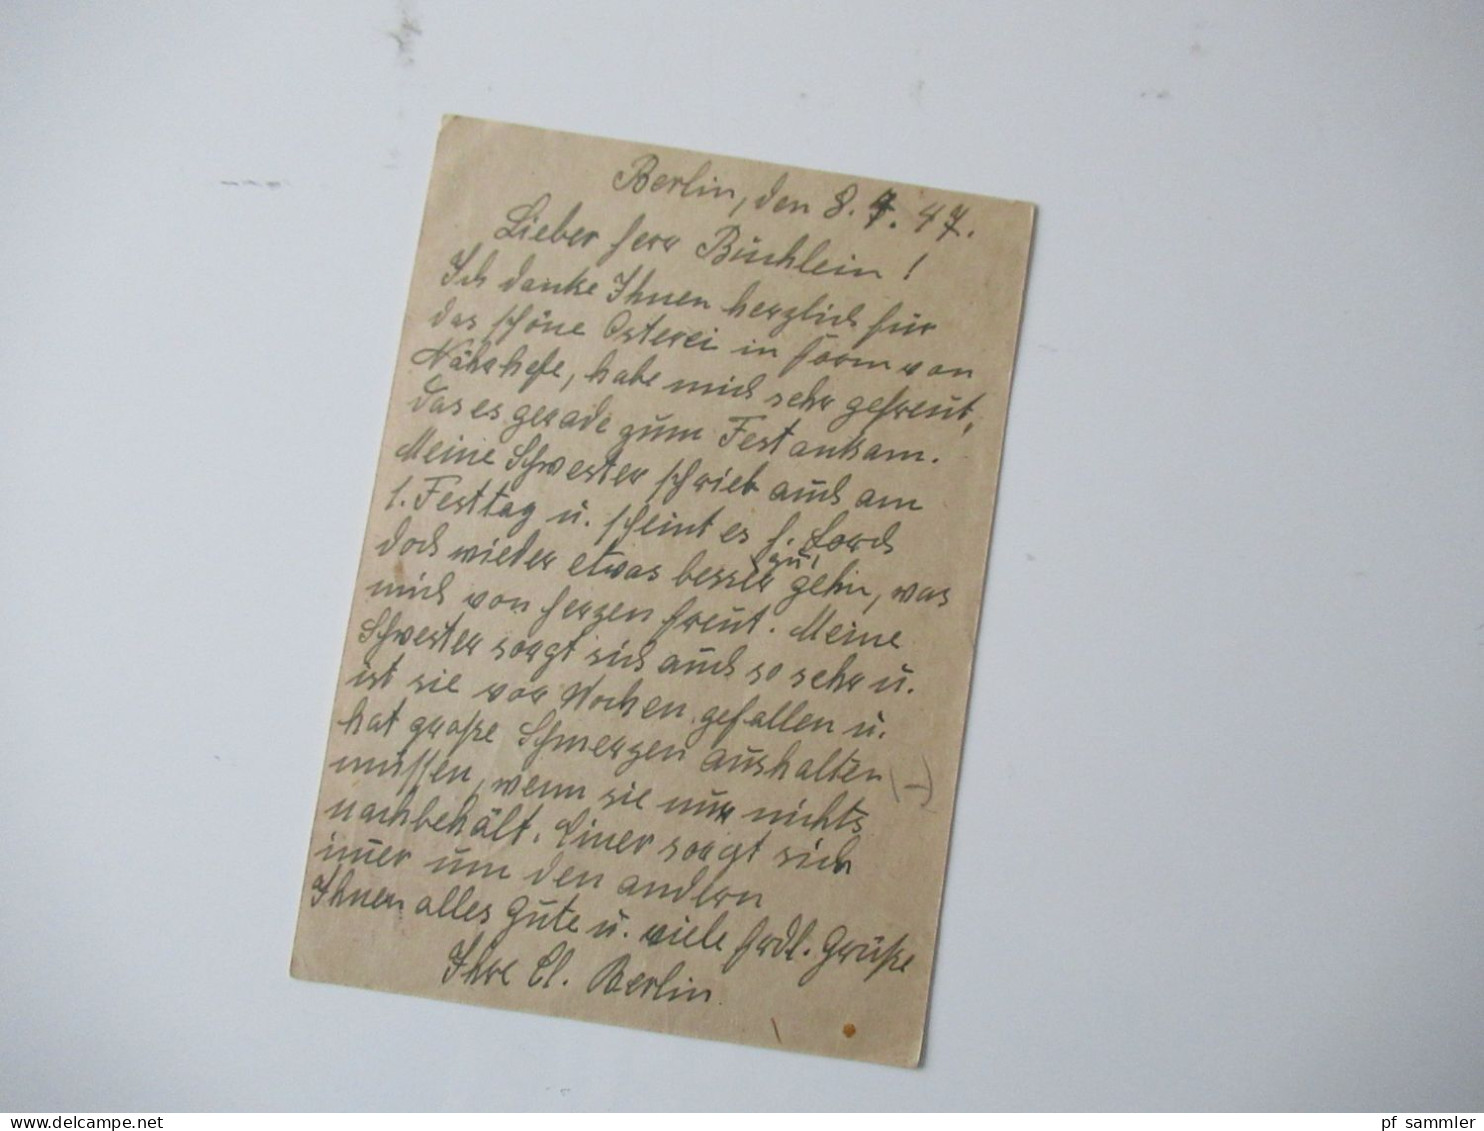 Berlin, den 8. 4. 47.
Lieber Herr Büchlein!
Ich danke Ihnen herzlich für
das schöne Osterei in Form von
Nährhefe, habe mich sehr gefreut,
das es gerade zum Fest ankam.
Meine Schwester schrieb auch am
1. Festtag u. scheint es H.
doch wieder etwas besser zu gehn, was
mich von Herzen freut. Meine
Schwester sorgt sich auch so sehr u.
ist sie vor Wochen gefallen u.
hat große Schmerzen aushalten
müssen, wenn sie nur nichts
nachbehält. Einer sorgt sich
imer um den andern
Ihnen alles Gute u. viele frdl. Grüße
Ihre Cl. Berlin.
pf sammler